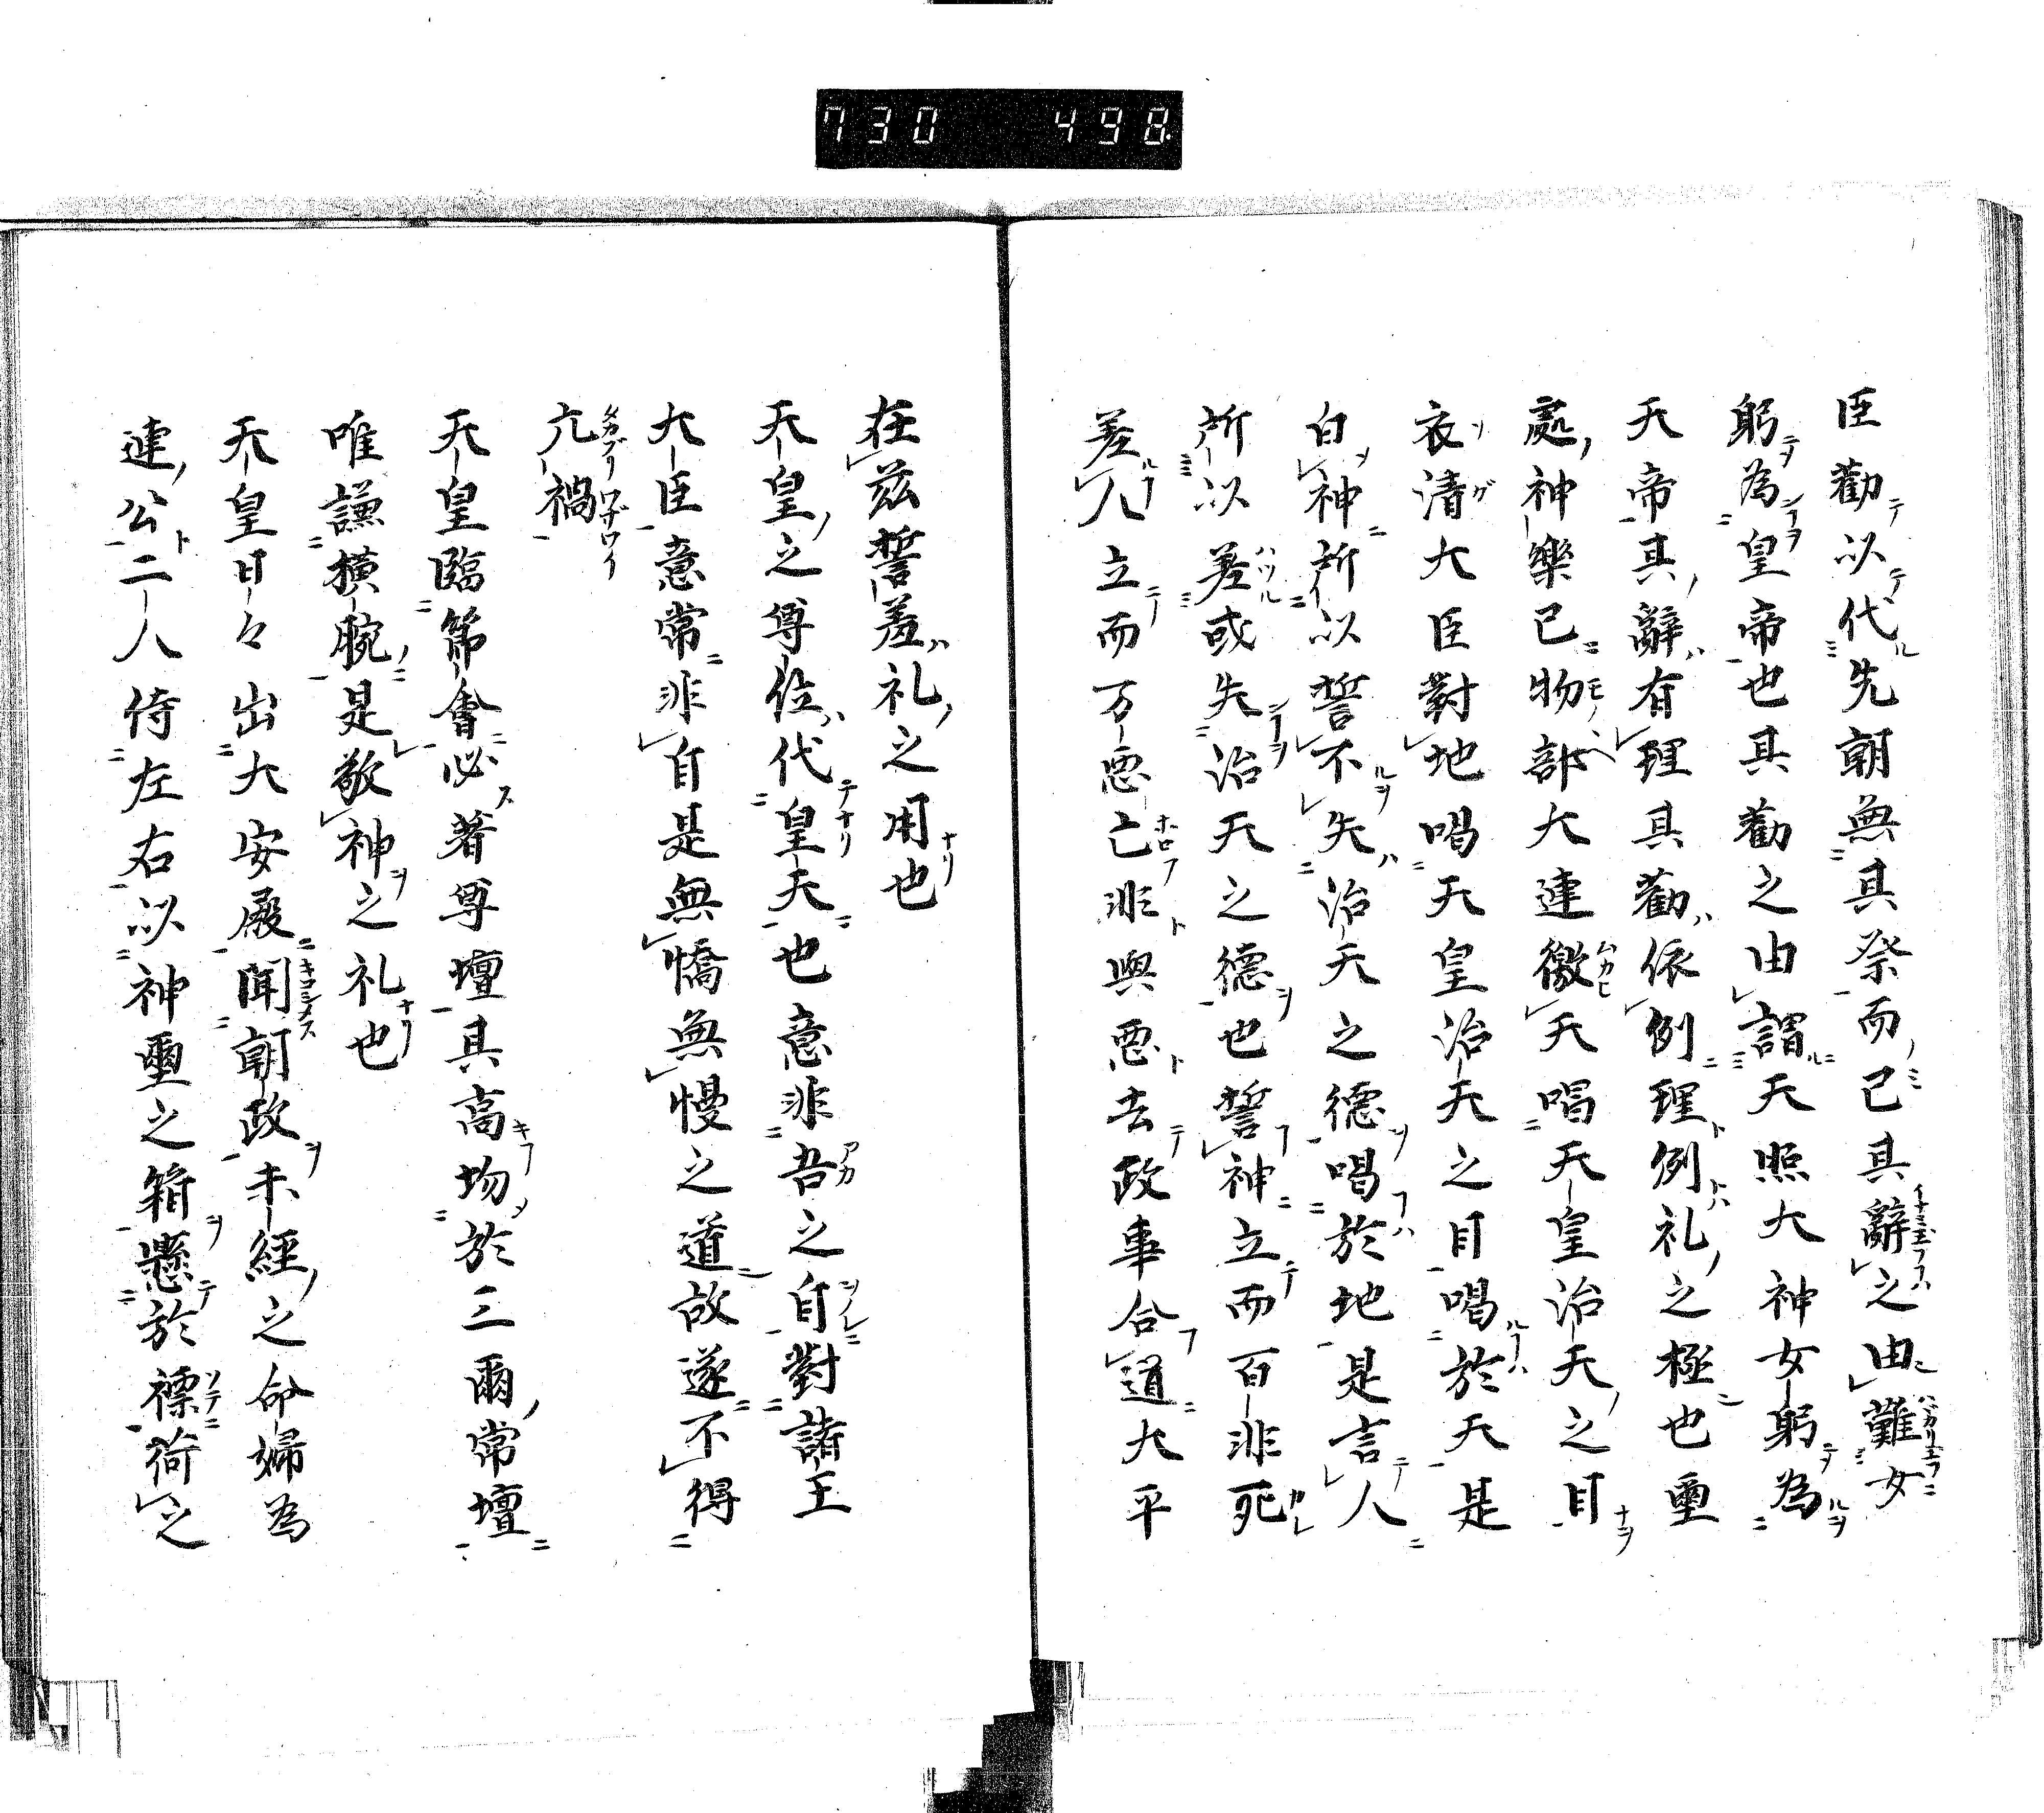 730 498
臣勸以代先朝無其祭而已其辭之由難女
躬為皇帝也其勸之由謂天照大神女躬為
天帝其辭有理其勸依例理例礼之極也重
處神樂已物部大連徴天唱天皇治天之日
衣清大臣對地唱天皇治天之日唱於天是
白神所以誓不失治天之德唱於地是言人
所以差或失治天之德也誓神立而百非死
差人立而万惡亡非與惡去政事合道大平
在茲誓羞礼之用也
天皇之尊位代皇天也意非吾之自對諸王
大臣意常非自是無憍無慢之道故遂不得
亢禍
天皇臨節會必著尊壇其高物於三爾常壇
唯謙横腕是敬神之礼也
天皇日々出大安殿聞朝政未經之命婦為
連公二人侍左右以神璽之箱懸於褾荷之